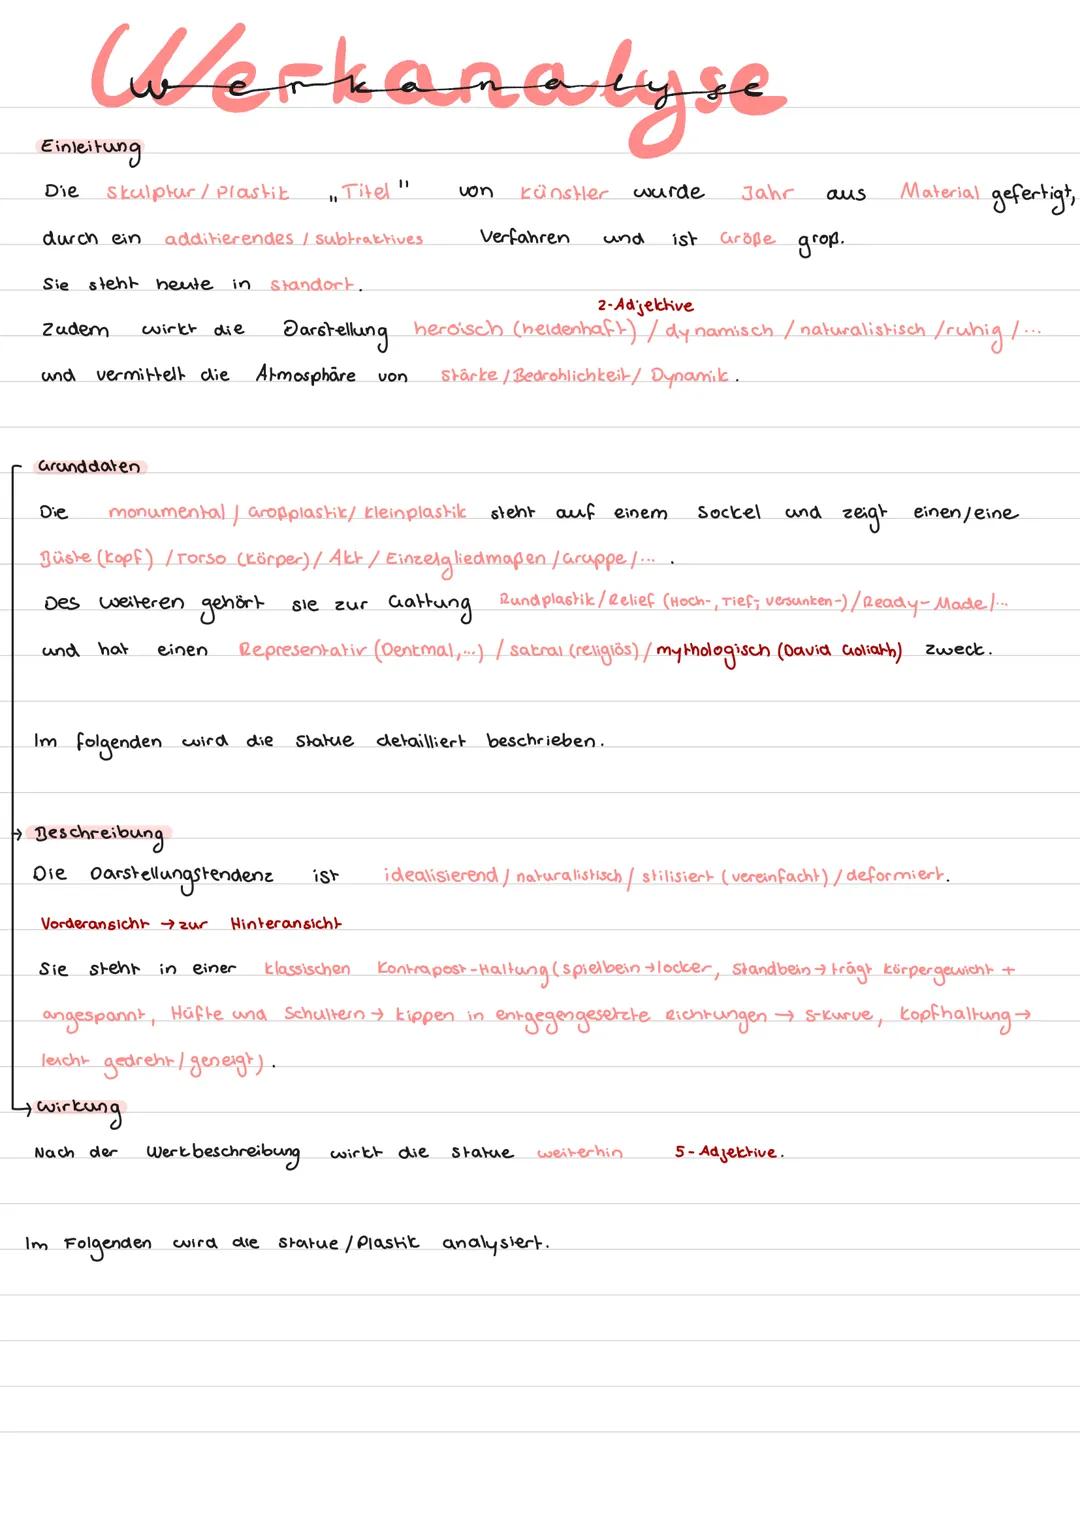 Werkanalyse
Werkanalyse
Einleitung
Die Skulptur / Plastik „Titel" von Künstler wurde Jahr aus Material gefertigt,
durch ein additierendes / subtraktives Verfahren und ist Größe groß.
Sie steht heute in Standort.
2-Adjektive
Zudem wirkt die Darstellung heroisch (heldenhaft) / dynamisch / naturalistisch / ruhig / ...
und vermittelt die Atmosphäre von Stärke / Bedrohlichkeit / Dynamik.
Grunddaten
Die monumental / Großplastik / Kleinplastik steht auf einem Sockel und zeigt einen/eine
Büste (Kopf) / Torso (Körper) / Akt / Einzelgliedmaßen / Gruppe / ... .
Des weiteren gehört sie zur Gattung Rundplastik / Relief (Hoch-, Tief-, versunken-) / Ready-Made / ...
und hat einen Representativ (Denkmal, ...) / sakral (religiös) / mythologisch (David Goliath) zweck.
Im folgenden wird die Statue detailliert beschrieben.
→ Beschreibung
Die Darstellungstendenz ist idealisierend / naturalistisch / stilisiert (vereinfacht) / deformiert.
Vorderansicht → zur Hinteransicht
Sie steht in einer klassischen Kontrapost-Haltung (spielbein → locker, Standbein → trägt Körpergewicht +
angespannt, Hüfte und Schultern → kippen in entgegengesetzte Richtungen → S-Kurve, Kopfhaltung →
leicht gedreht / geneigt).
→ Wirkung
Nach der Werkbeschreibung wirkt die Statue weiterhin 5-Adjektive.
Im Folgenden wird die Statue / Plastik analysiert.